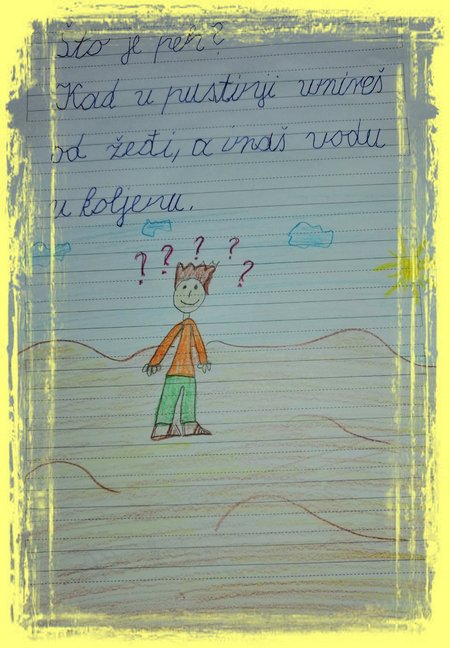 Što je peh?
Kad u pustinji umireš
od žeđi, a imaš vodu
u koljenu.
? ? ? ? ?